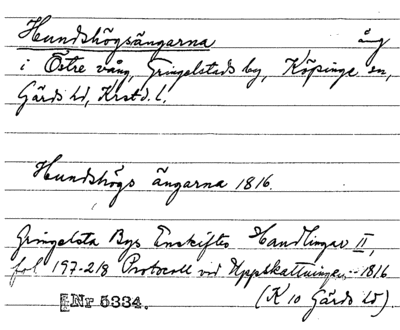 Hundshögsängarna äng
i Östre vång, Gringelstads by, Köpinge sn,
Gärds hd, Krstd. l.
Hundshögs ängarna 1816.
Gringelsta Bys Enskiftes Handlingar II,
fol 197-218 Protocoll vid Uppskattningen 1816
Nr 5334. (K 10 Gärds hd).